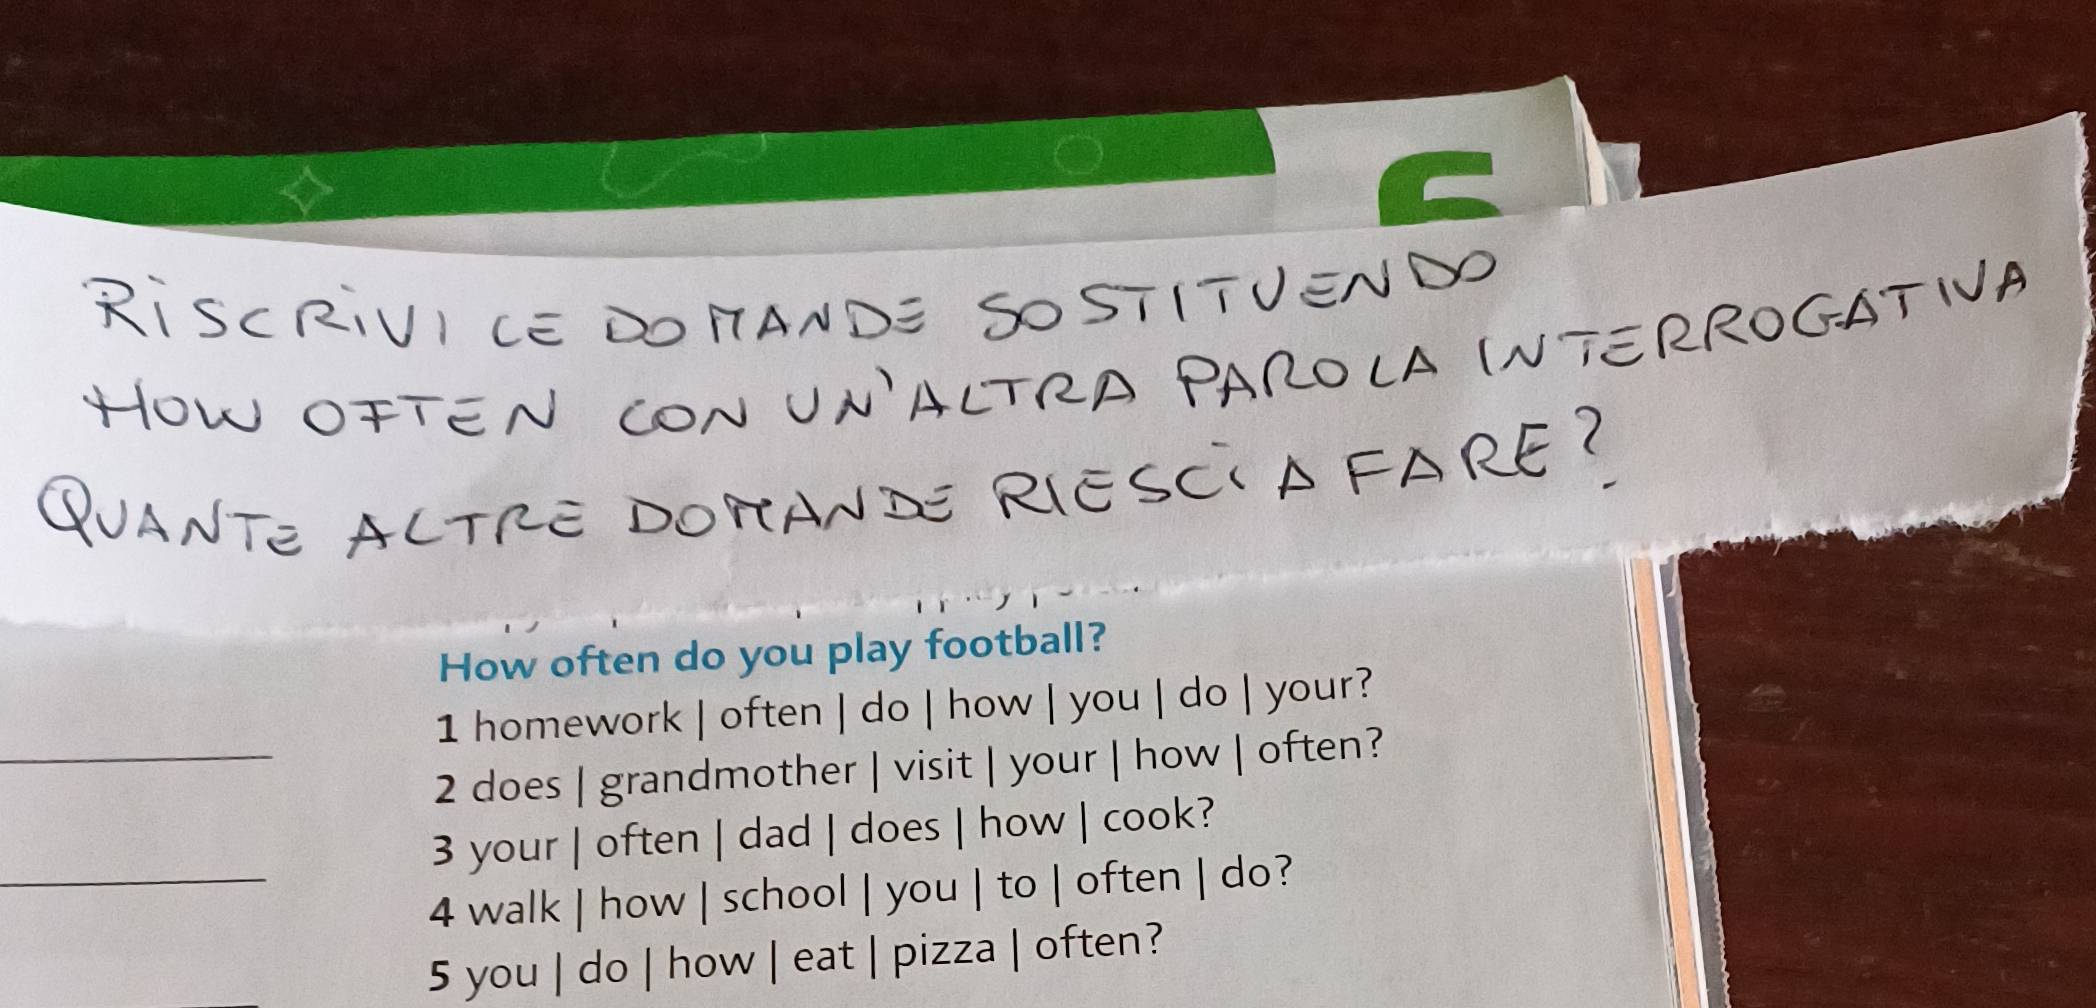 RISCRIVI LE DOMANDE SOSTITUENDO
HOW OFTEN CON UN'ALTRA PAROLA INTERROGATIVA
QUANTE ALTRE DOMANDE RIESCI A FARE?
How often do you play football?
1 homework | often | do | how | you | do | your?
2 does | grandmother | visit | your | how | often?
3 your | often | dad | does | how | cook?
4 walk | how | school | you | to | often | do?
5 you | do | how | eat | pizza | often?